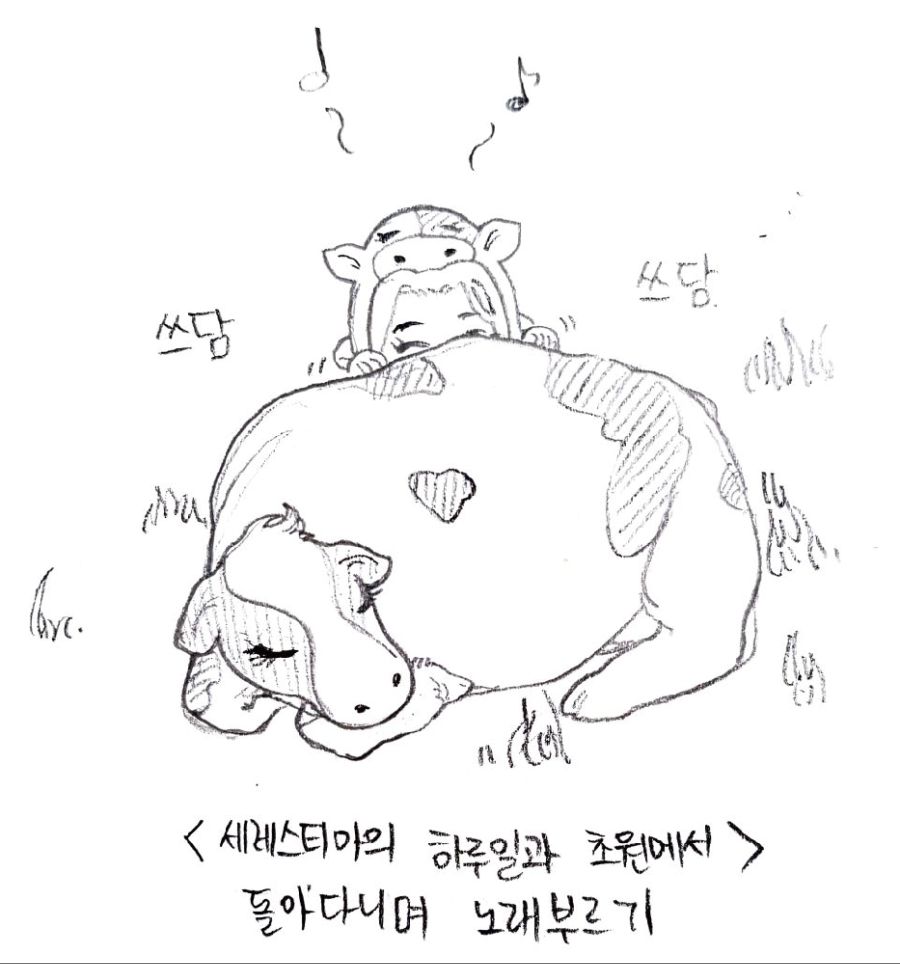 쓰담
쓰담
<세레스티아의 하루일과 초원에서>
돌아다니며 노래부르기